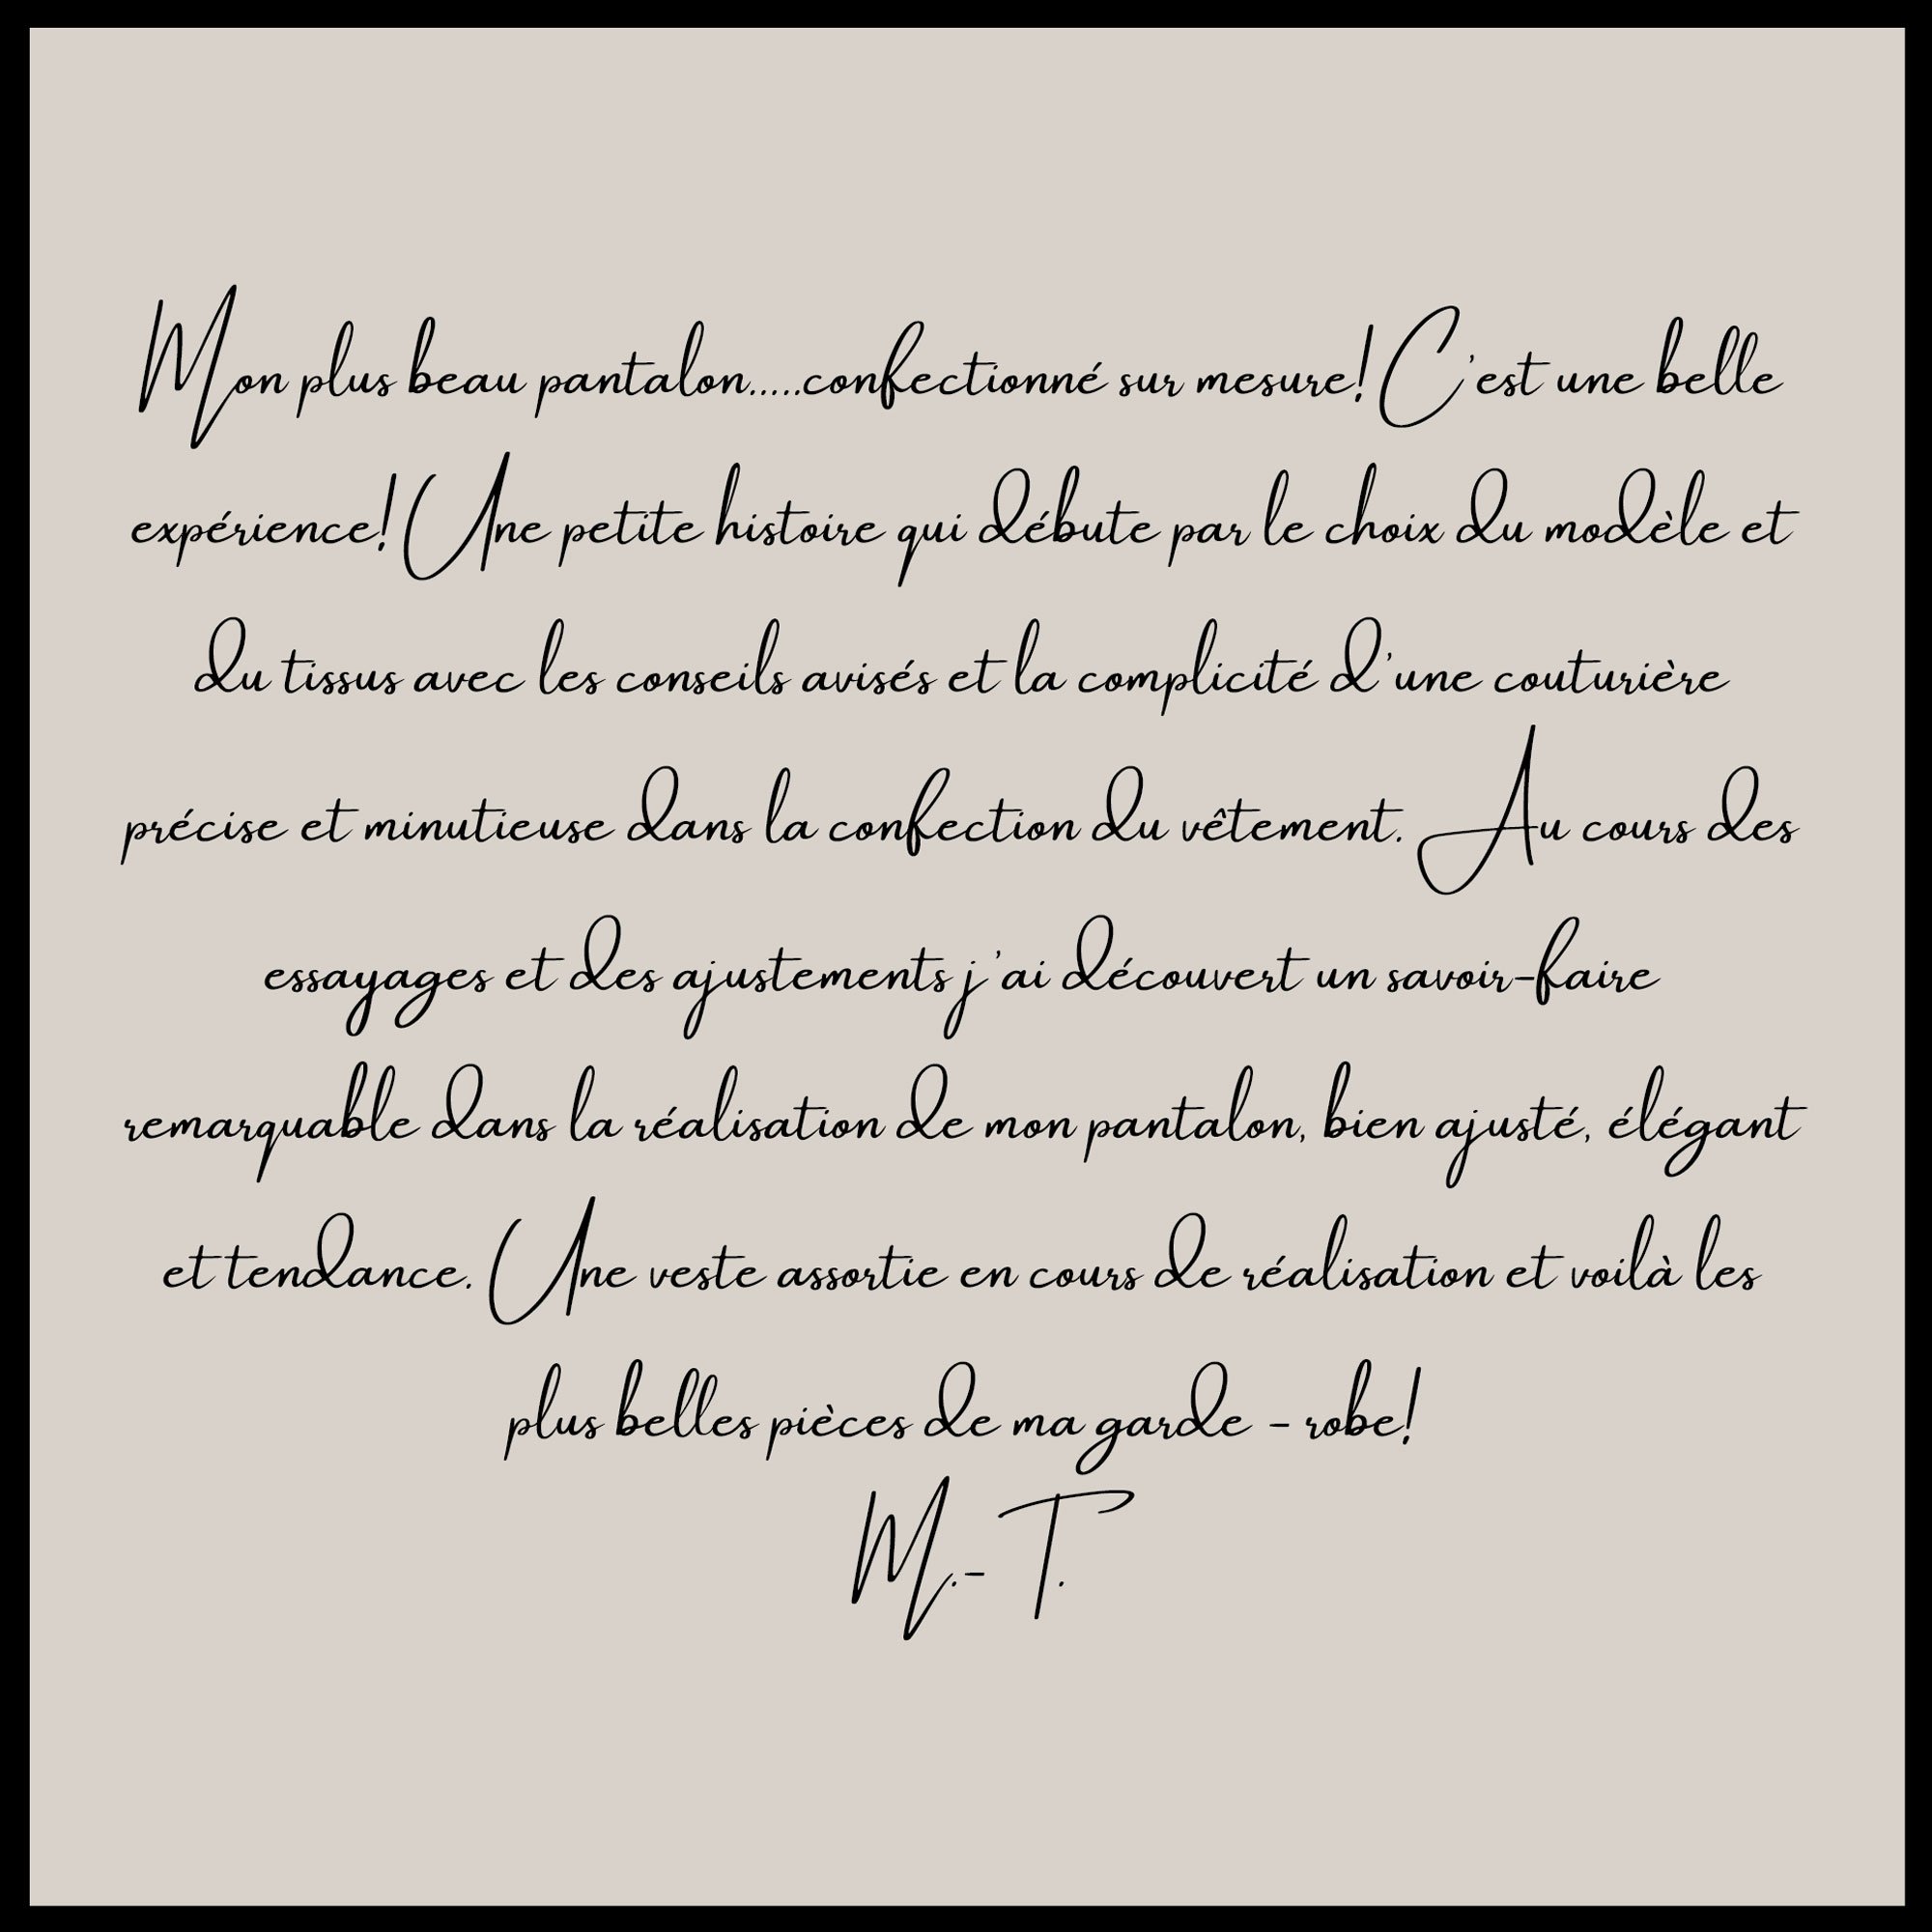 Mon plus beau pantalon.....confectionné sur mesure! C'est une belle
expérience! Une petite histoire qui débute par le choix du modèle et
du tissus avec les conseils avisés et la complicité d'une couturière
précise et minutieuse dans la confection du vêtement. Au cours des
essayages et des ajustements j'ai découvert un savoir-faire
remarquable dans la réalisation de mon pantalon, bien ajusté, élégant
et tendance. Une veste assortie en cours de réalisation et voilà les
plus belles pièces de ma garde - robe!
M.- T.